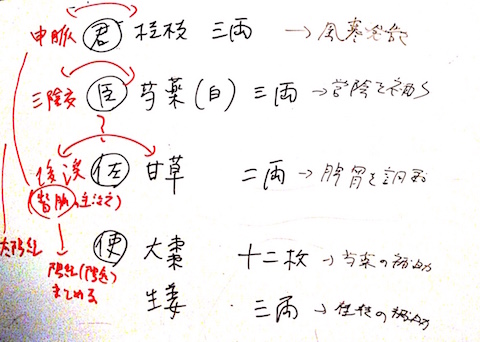 申脈 君 桂枝 三両 → 風寒発散
三陰交 臣 芍薬(白) 三両 → 営陰を補う
後渓 佐 甘草 二両 → 脾胃を調和
督脈
太陽経 使 大棗 十二枚 → 芍薬の補助
陽経
まとめる
生姜 三両 → 桂枝の補助